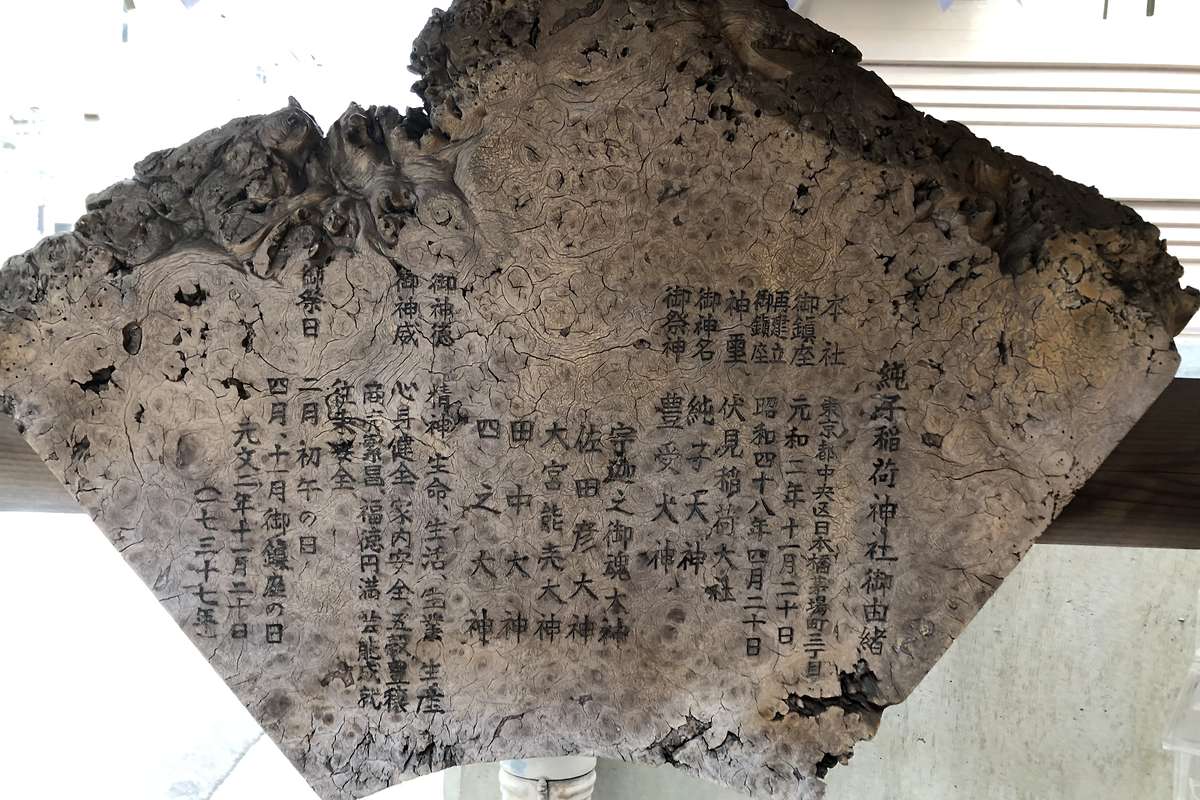 純子稲荷神社御由緒
本社 東京都中央区日本橋茅場町三丁目
御鎮座 元和二年十一月二十日
再建立御鎮座 昭和四十八年四月二十日
神璽 伏見稲荷大社
御神名 純子天神
御祭神 豊受大神
宇迦之御魂大神
佐田彦大神
大宮能売大神
田中大神
四之大神
御神徳 精神、生命、生活、生業、生産
御神威 心身健全、家内安全、五穀豊穣
商売繁昌、福徳円満、芸能成就
往来安全
御祭日 二月 初午の日
四月、十一月御鎮座の日
元文二年十一月二十日
(一七三十七年)